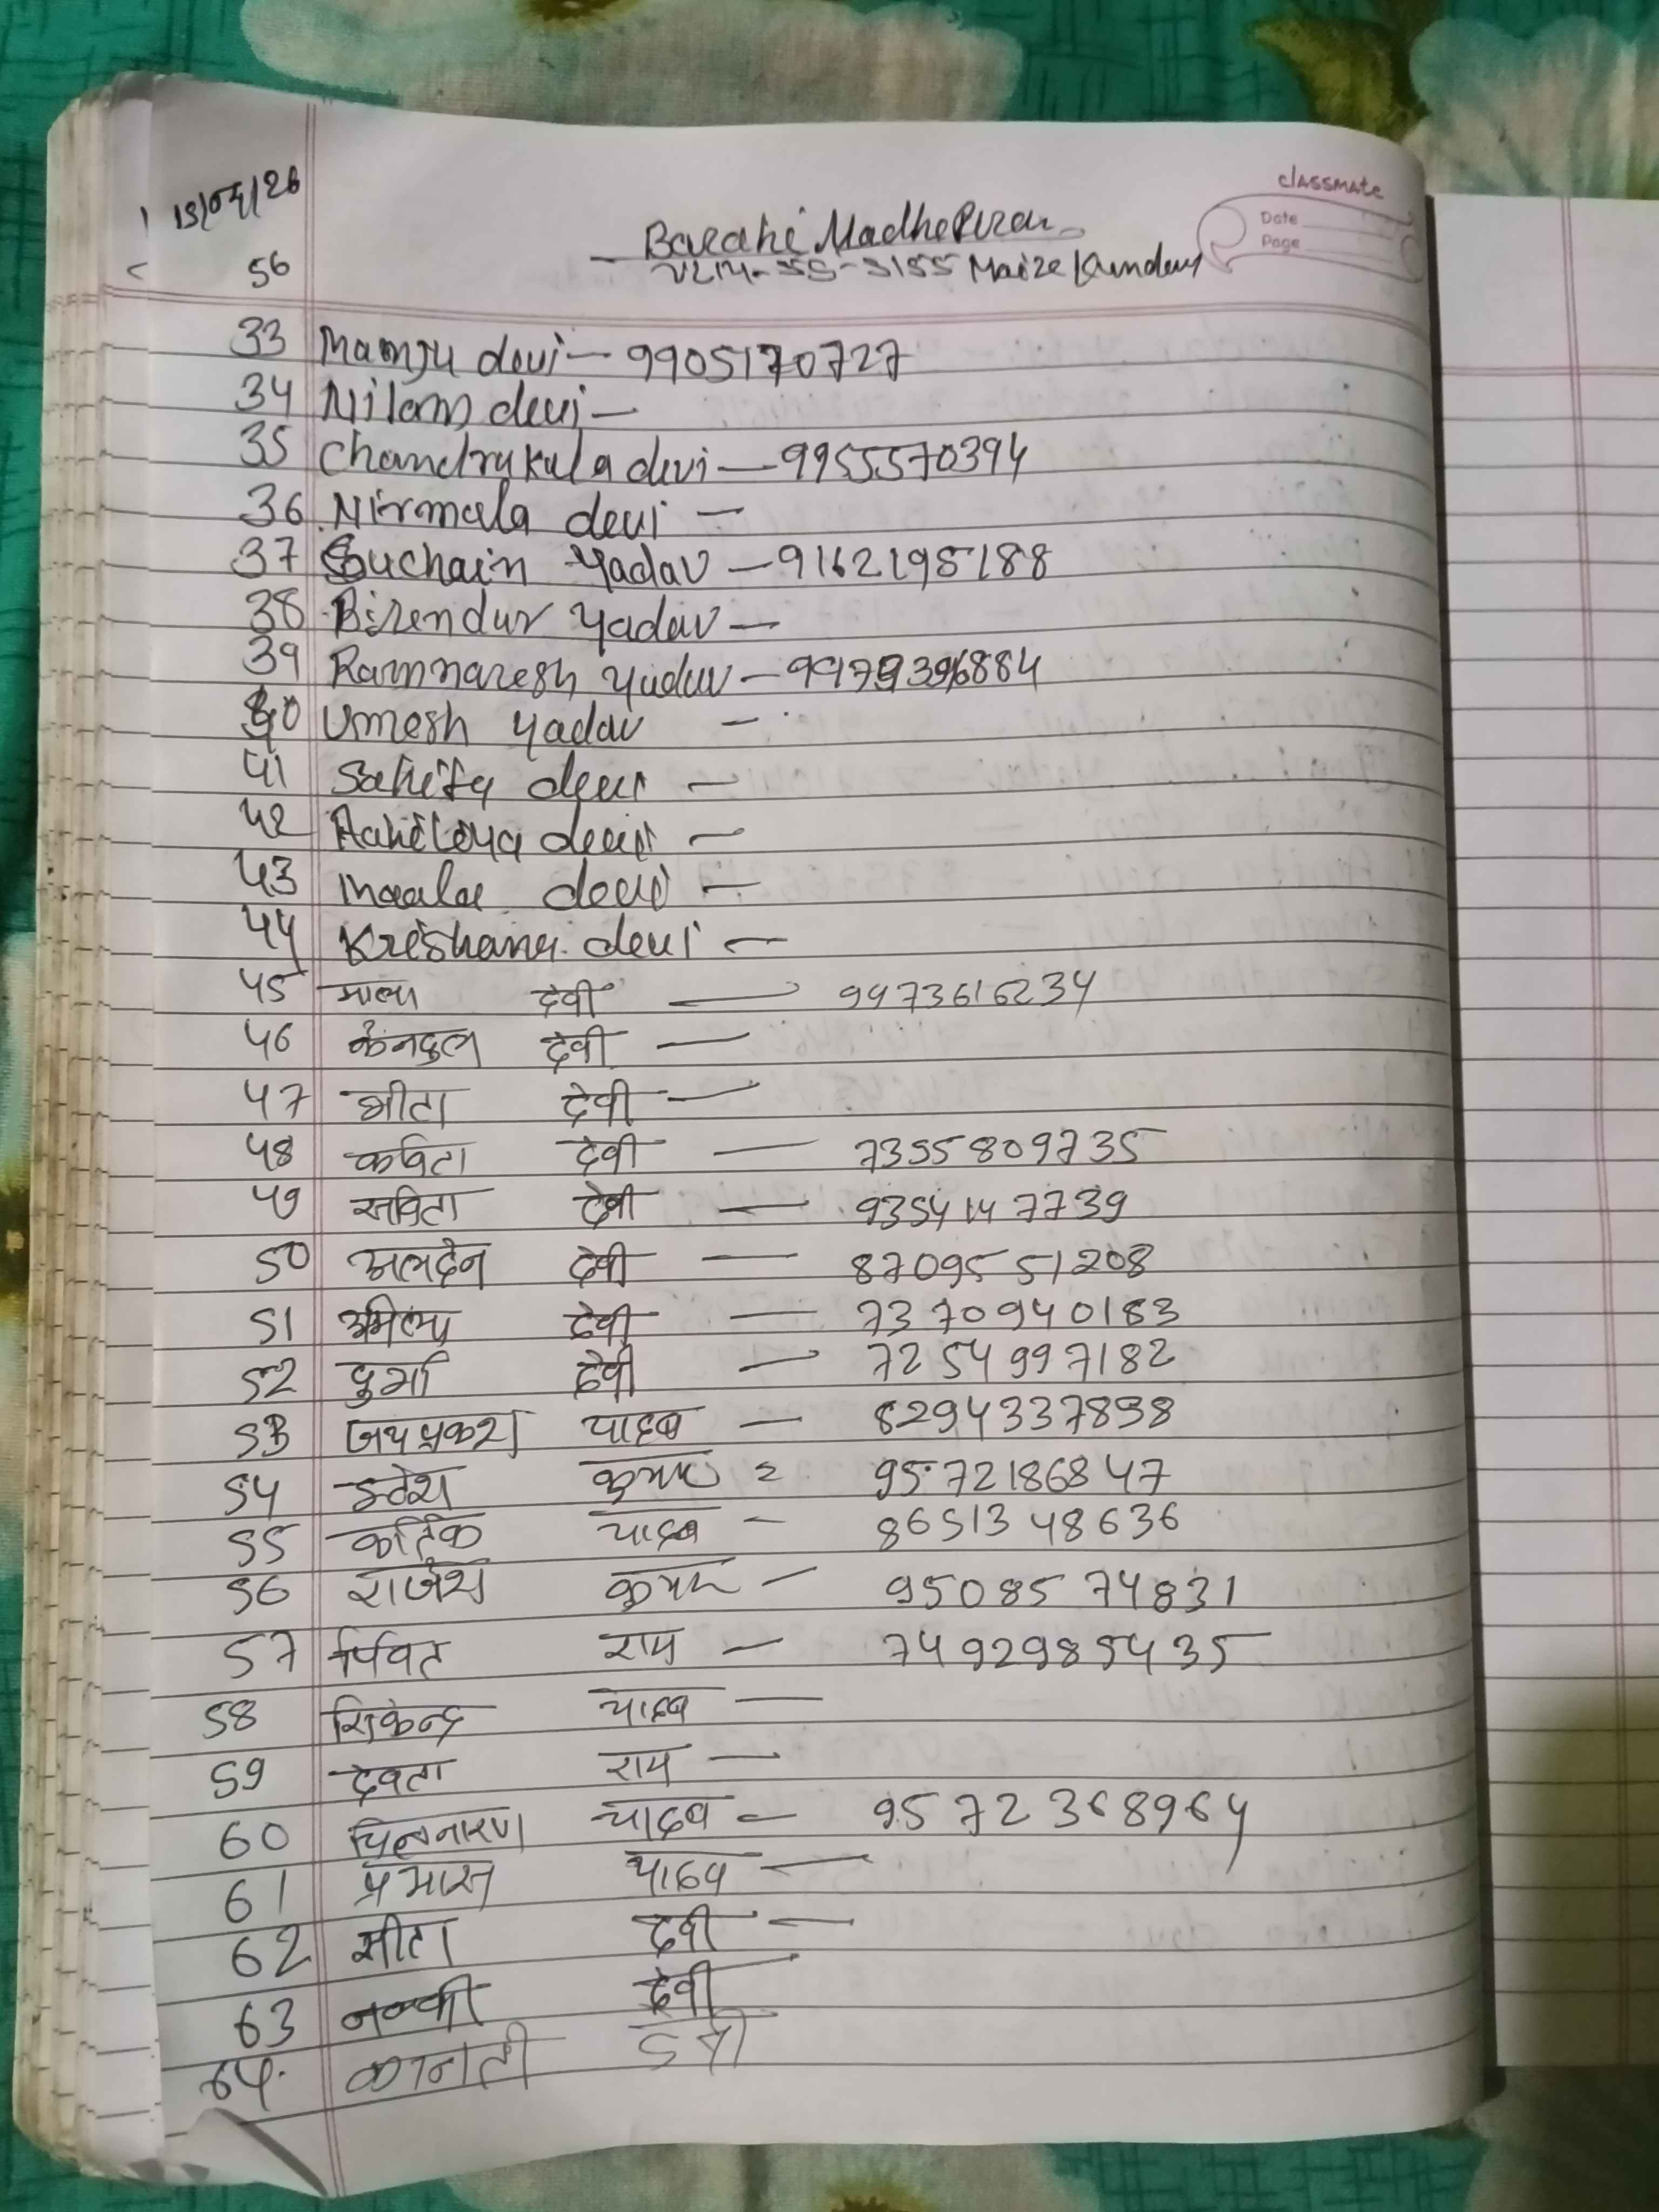 classmate
Date
Page
Barahi Madhepura
56
33 Manju devi — 9905170727
34 Nilam devi —
35 Chandrakala devi — 9955570394
36. Nirmala devi —
37 Suchain Yadav — 9162195188
38 Birendur yadav —
39 Ramnaresh yadav —
40 Umesh yadav —
41 devi —
42 devi —
43 Maala devi —
44 Krishana devi —
45 माला देवी — 9473616234
46 देवी —
47 मीटा देवी —
48 कविता देवी — 7355809735
49 सविता देवी — 9354147739
50 देवी — 8709551208
51 देवी — 7370940183
52 देवी — 7254997182
53 जयप्रकश यादव — 8294337898
54 कुमार = 9572186847
55 कार्तिक यादव — 8651348636
56 राजेश कुमार — 9508574831
57 राम — 7492985435
58 सिकेन्द्र यादव —
59 देवता राम —
60 यादव = 9572368964
61 यादव —
62 सीता देवी —
63 देवी
64. देवी